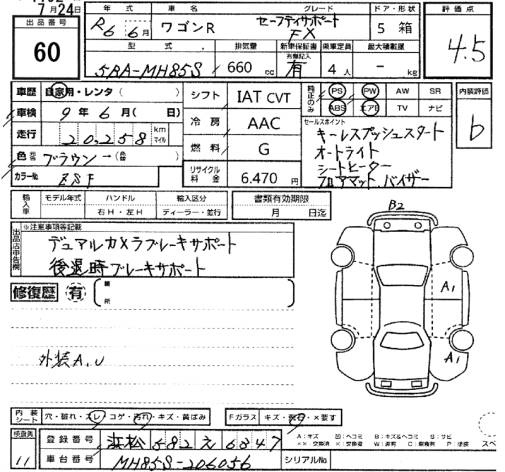 7月24日
出品番号
60
年式 車名 グレード ドア・形状
R6 6月 ワゴンR セーフティサポート FX 5 箱
型式 排気量 新車保証書 乗車定員 最大積載量
5BA-MH85S 660cc 有 4人 - kg
評価点
4.5
車歴 自家用・レンタ( )
車検 9年6月( 日)
走行 20,258 km マイル
色 ブラウン→( )
カラーNo ZSF
シフト IAT CVT
冷房 AAC
燃料 G
リサイクル料金 6.470円
純正のみ
PS PW AW SR
ABS エアB TV ナビ
セールスポイント
キーレスプッシュスタート
オートライト
シートヒーター
フロアマット、バイザー
内装評価
b
輸入車 モデル年式 ハンドル 輸入区分
右H・左H ディーラー・並行
書類有効期限
月 日迄
出品店申告欄
※注意事項等記載
デュアルカメラブレーキサポート
後退時ブレーキサポート
修復歴 有 箇所
外装A.U
B2
A1
A1
内装シート 穴・破れ・スレ・コゲ・汚れ・キズ・黄ばみ
Fガラス キズ・飛石・×要す
検査員
11
登録番号 浜松 582 え 6347
車台番号 MH85S-206056
シリアルNo
A:キズ U:凹ヘコミ B:キズ&ヘコミ S:サビ